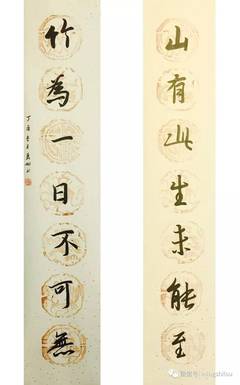 山有此生未能至
竹為一日不可無
丁酉